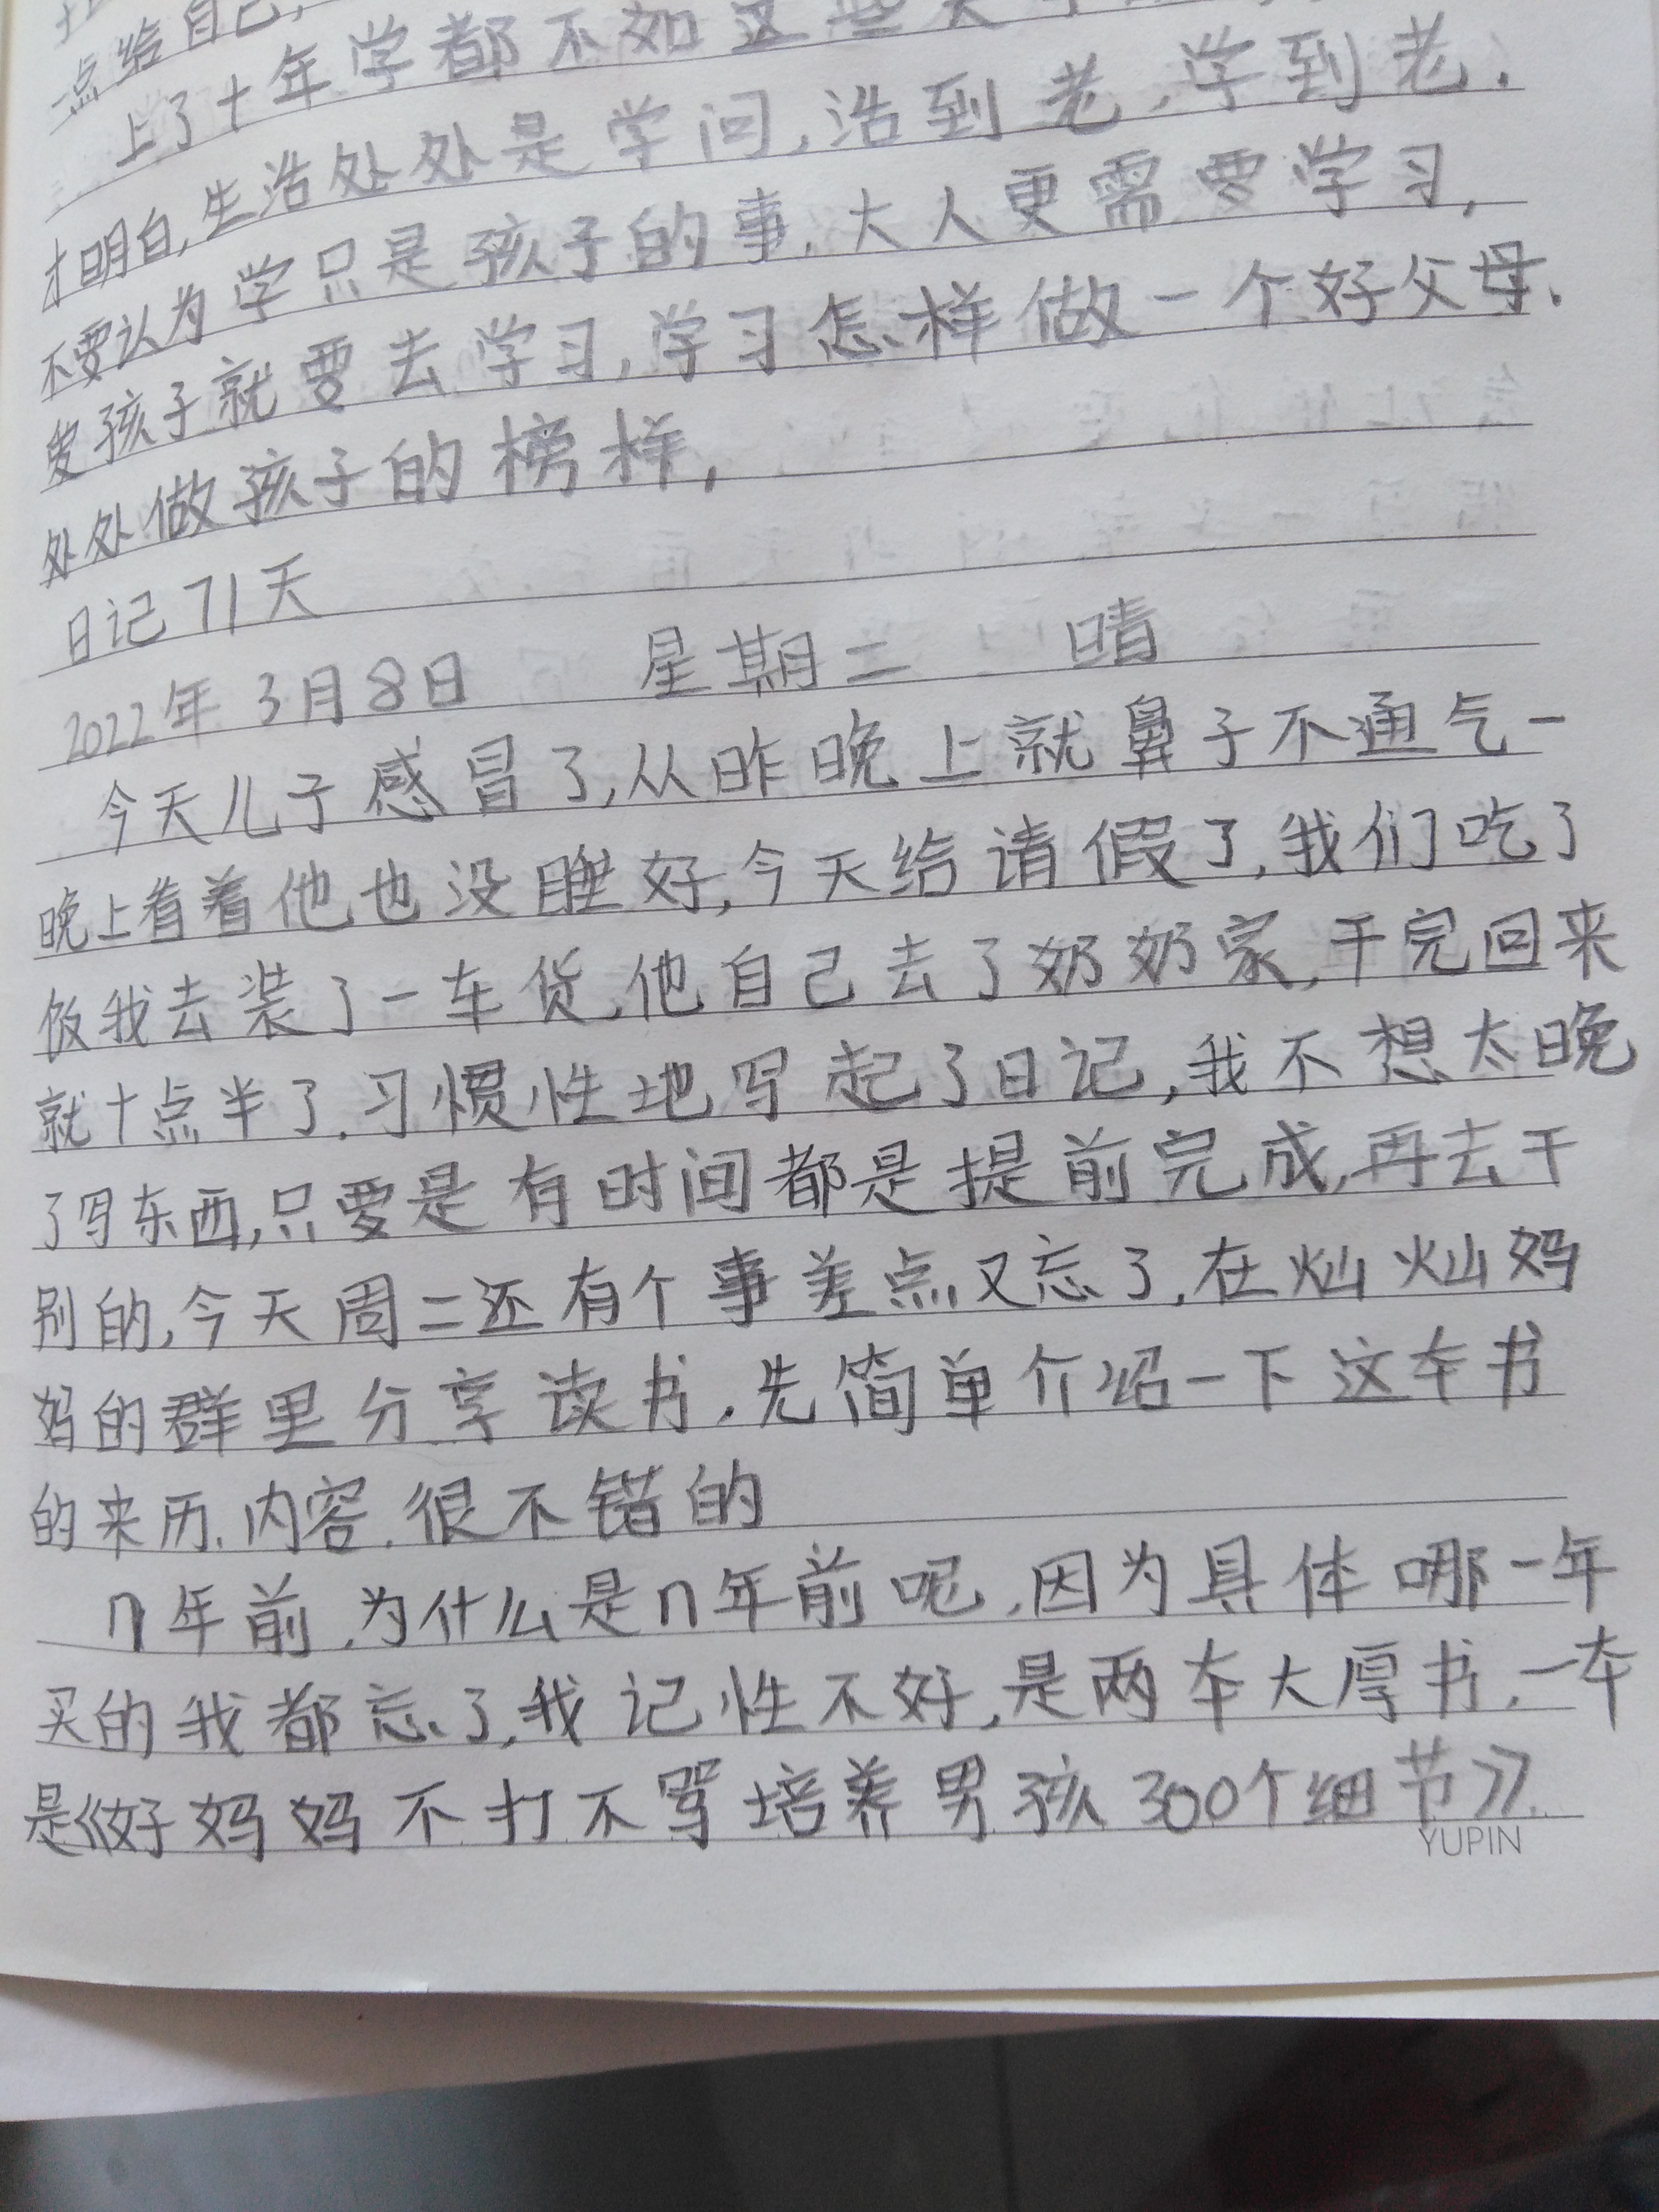 点给自己,
上了十年学都不如这些天
才明白,生活处处是学问,活到老,学到老.
不要认为学只是孩子的事,大人更需要学习,
爱孩子就要去学习,学习怎样做一个好父母.
处处做孩子的榜样,
日记71天
2022年3月8日 星期二 晴
今天儿子感冒了,从昨晚上就鼻子不通气一
晚上看着他也没睡好,今天给请假了,我们吃了
饭我去装了一车货,他自己去了奶奶家,干完回来
就十点半了.习惯性地写起了日记,我不想太晚
了写东西,只要是有时间都是提前完成,再去干
别的,今天周二还有个事差点又忘了,在灿灿妈
妈的群里分享读书.先简单介绍一下这本书
的来历.内容.很不错的
n年前.为什么是n年前呢.因为具体哪一年
买的我都忘了,我记性不好,是两本大厚书,一本
是《好妈妈不打不骂培养男孩300个细节》
YUPIN